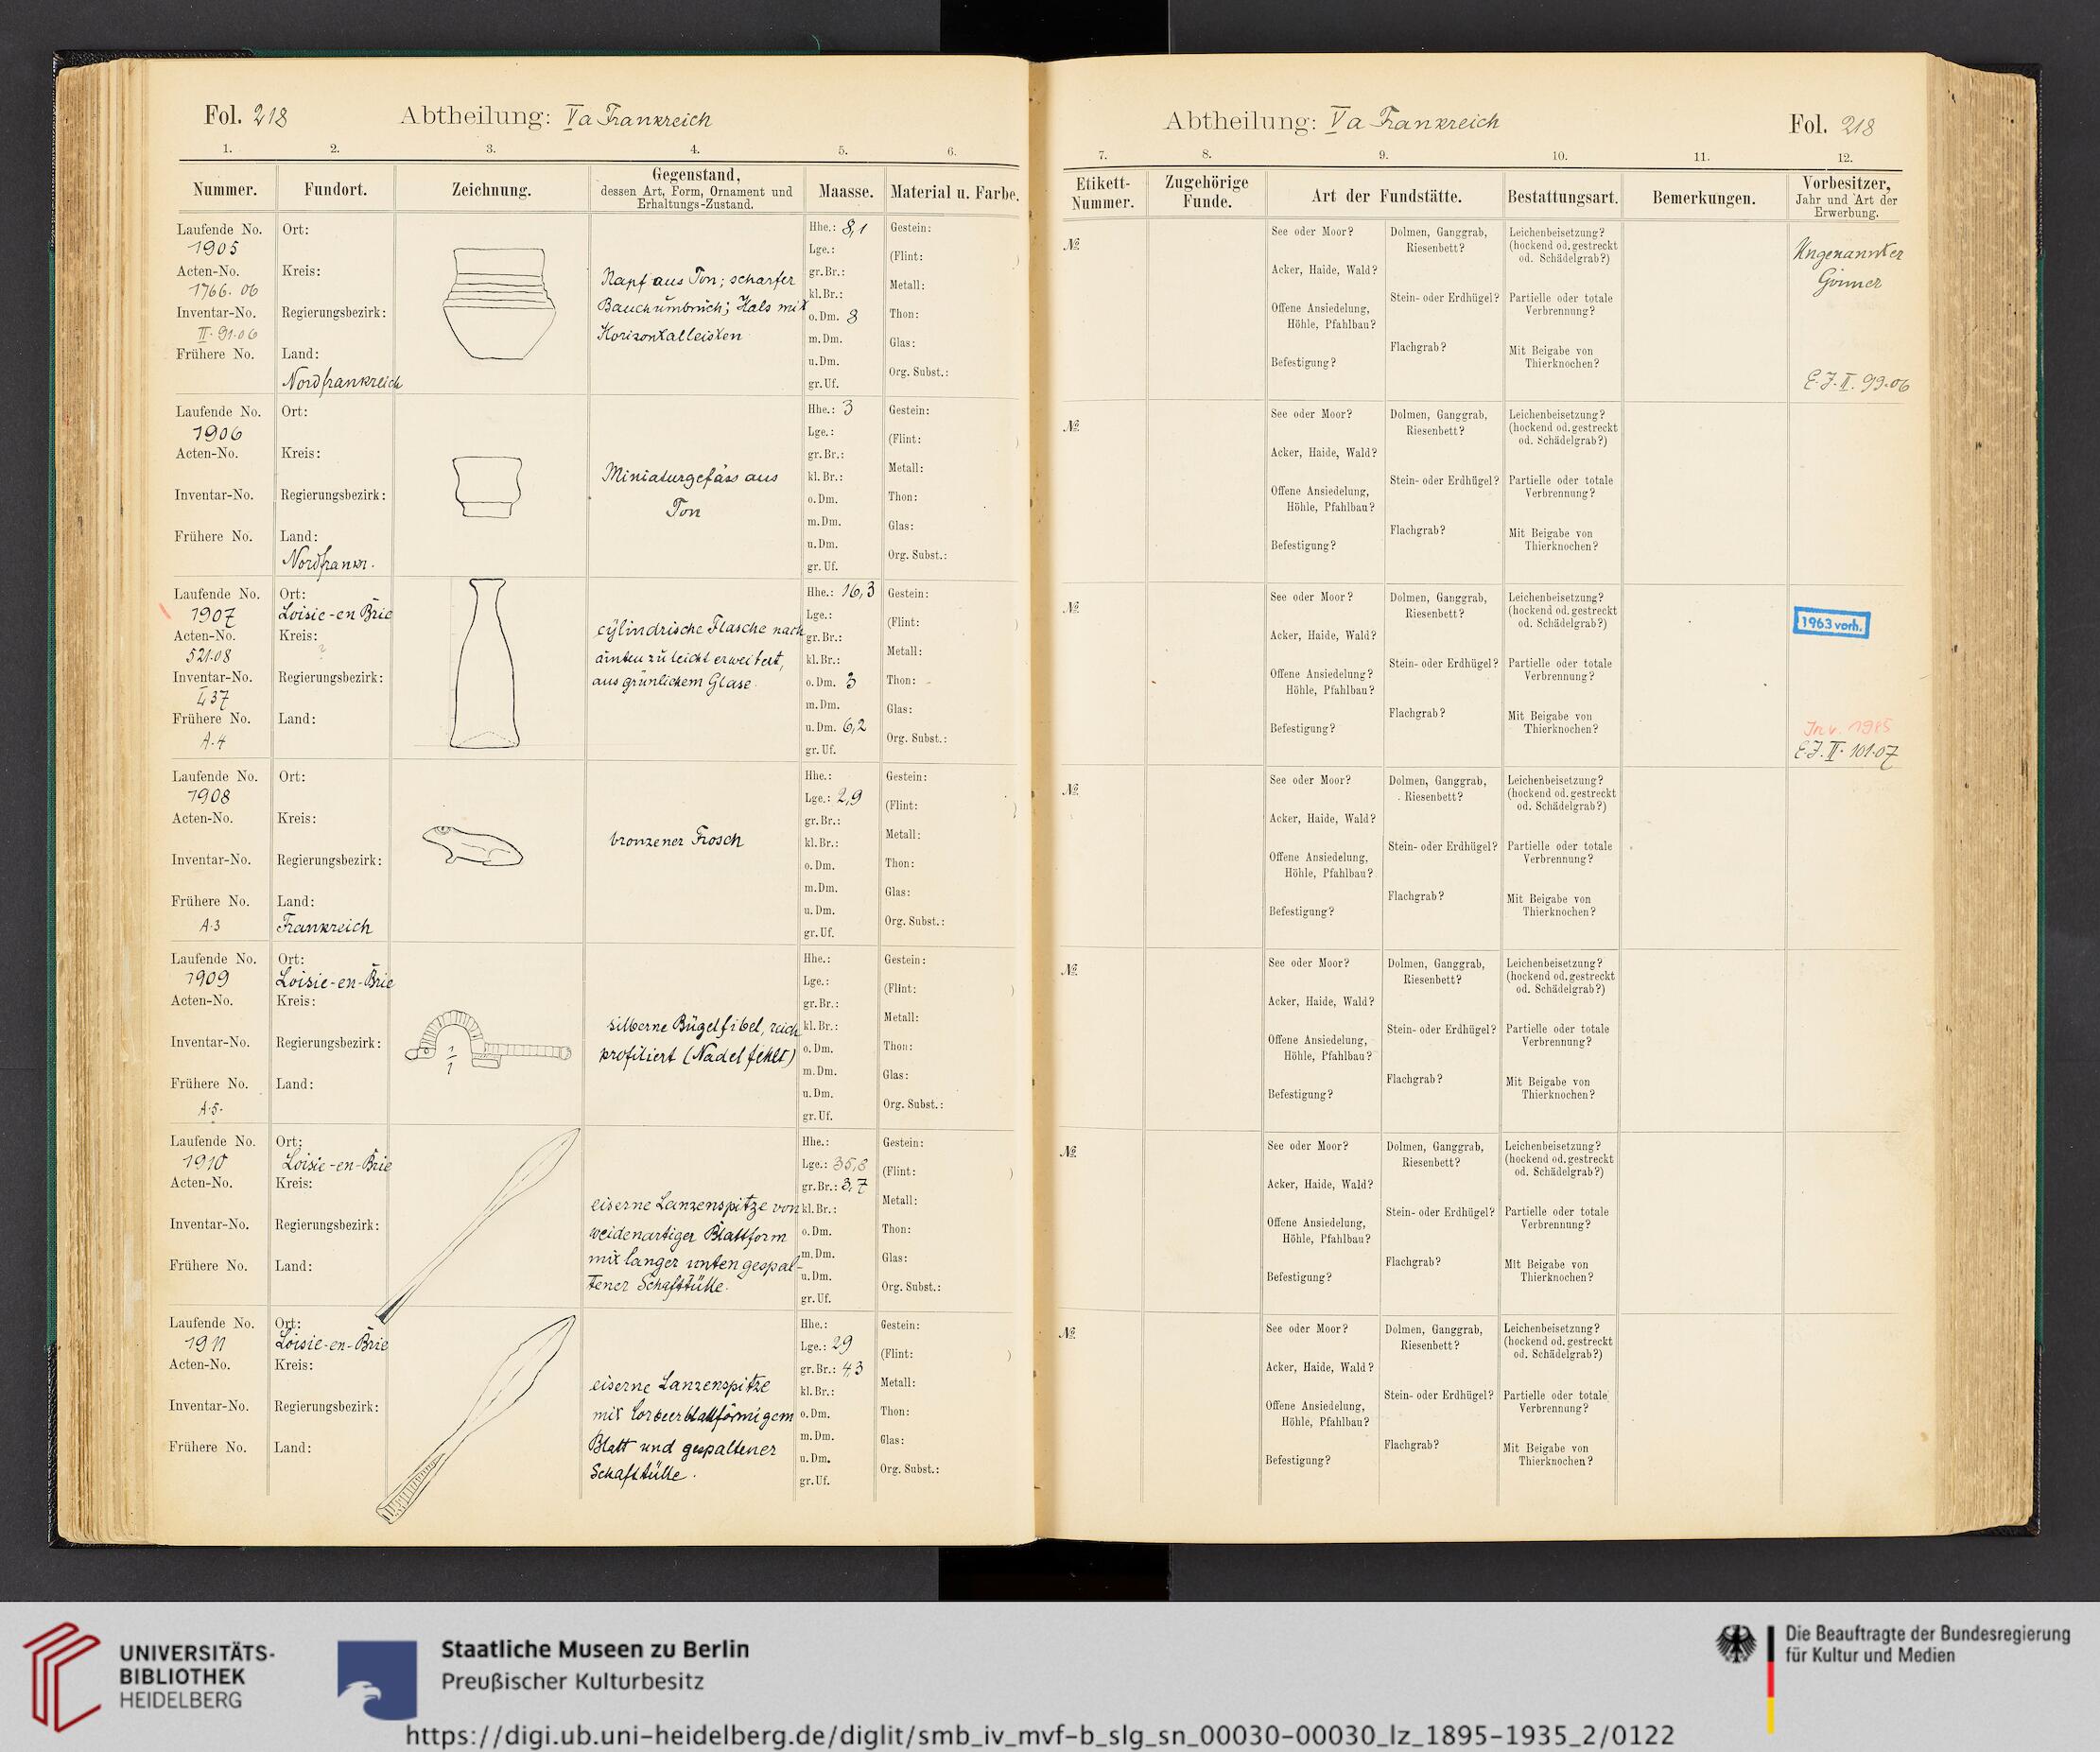 Fol. 218
Abtheilung: Va Frankreich
1. 2. 3. 4. 5. 6.
Nummer. Fundort. Zeichnung. Gegenstand, dessen Art, Form, Ornament und Erhaltungs-Zustand. Maasse. Material u. Farbe.
Laufende No. 1905
Acten-No. 1766.06
Inventar-No. II. 91.06
Frühere No.
Ort:
Kreis:
Regierungsbezirk:
Land: Nordfrankreich
Napf aus Ton; scharfer
Bauchumbruch; Hals mit
Horizontalleisten
Hhe.: 8,1
Lge.:
gr. Br.:
kl. Br.:
o. Dm. 8
m. Dm.
u. Dm.
gr. Uf.
Gestein:
(Flint: )
Metall:
Thon:
Glas:
Org. Subst.:
Laufende No. 1906
Acten-No.
Inventar-No.
Frühere No.
Ort:
Kreis:
Regierungsbezirk:
Land: Nordfrankr.
Miniaturgefäss aus
Ton
Hhe.: 3
Lge.:
gr. Br.:
kl. Br.:
o. Dm.
m. Dm.
u. Dm.
gr. Uf.
Gestein:
(Flint: )
Metall:
Thon:
Glas:
Org. Subst.:
Laufende No. 1907
Acten-No. 521.08
Inventar-No.
Frühere No. A.4
Ort: Loisie-en Brie
Kreis: ?
Regierungsbezirk:
Land:
cylindrische Flasche nach
unten zu leicht erweitert,
aus grünlichem Glase.
Hhe.: 16,3
Lge.:
gr. Br.:
kl. Br.:
o. Dm. 3
m. Dm.
u. Dm. 6,2
gr. Uf.
Gestein:
(Flint: )
Metall:
Thon:
Glas:
Org. Subst.:
Laufende No. 1908
Acten-No.
Inventar-No.
Frühere No. A.3
Ort:
Kreis:
Regierungsbezirk:
Land: Frankreich
bronzener Frosch
Hhe.:
Lge.: 2,9
gr. Br.:
kl. Br.:
o. Dm.
m. Dm.
u. Dm.
gr. Uf.
Gestein:
(Flint: )
Metall:
Thon:
Glas:
Org. Subst.:
Laufende No. 1909
Acten-No.
Inventar-No.
Frühere No. A.5.
Ort: Loisie-en-Brie
Kreis:
Regierungsbezirk:
Land:
1/1
silberne Bügelfibel, reich
profiliert (Nadel fehlt)
Hhe.:
Lge.:
gr. Br.:
kl. Br.:
o. Dm.
m. Dm.
u. Dm.
gr. Uf.
Gestein:
(Flint: )
Metall:
Thon:
Glas:
Org. Subst.:
Laufende No. 1910
Acten-No.
Inventar-No.
Frühere No.
Ort: Loisie-en-Brie
Kreis:
Regierungsbezirk:
Land:
eiserne Lanzenspitze von
weidenartiger Blattform
mit langer unten gespal-
tener Schafttülle.
Hhe.:
Lge.: 35,8
gr. Br.: 3,7
kl. Br.:
o. Dm.
m. Dm.
u. Dm.
gr. Uf.
Gestein:
(Flint: )
Metall:
Thon:
Glas:
Org. Subst.:
Laufende No. 1911
Acten-No.
Inventar-No.
Frühere No.
Ort: Loisie-en-Brie
Kreis:
Regierungsbezirk:
Land:
eiserne Lanzenspitze
mit lorbeerblattförmigem
Blatt und gespaltener
Schafttülle.
Hhe.:
Lge.: 29
gr. Br.: 4,3
kl. Br.:
o. Dm.
m. Dm.
u. Dm.
gr. Uf.
Gestein:
(Flint: )
Metall:
Thon:
Glas:
Org. Subst.:
Abtheilung: Va Frankreich
Fol. 218
7. 8. 9. 10. 11. 12.
Etikett-Nummer. Zugehörige Funde. Art der Fundstätte. Bestattungsart. Bemerkungen. Vorbesitzer, Jahr und Art der Erwerbung.
№
See oder Moor?
Acker, Haide, Wald?
Offene Ansiedelung, Höhle, Pfahlbau?
Befestigung?
Dolmen, Ganggrab, Riesenbett?
Stein- oder Erdhügel?
Flachgrab?
Leichenbeisetzung? (hockend od. gestreckt od. Schädelgrab?)
Partielle oder totale Verbrennung?
Mit Beigabe von Thierknochen?
Ungenannter
Gönner
E.J. II. 99.06
№
See oder Moor?
Acker, Haide, Wald?
Offene Ansiedelung, Höhle, Pfahlbau?
Befestigung?
Dolmen, Ganggrab, Riesenbett?
Stein- oder Erdhügel?
Flachgrab?
Leichenbeisetzung? (hockend od. gestreckt od. Schädelgrab?)
Partielle oder totale Verbrennung?
Mit Beigabe von Thierknochen?
№
See oder Moor?
Acker, Haide, Wald?
Offene Ansiedelung? Höhle, Pfahlbau?
Befestigung?
Dolmen, Ganggrab, Riesenbett?
Stein- oder Erdhügel?
Flachgrab?
Leichenbeisetzung? (hockend od. gestreckt od. Schädelgrab?)
Partielle oder totale Verbrennung?
Mit Beigabe von Thierknochen?
1963 vorh.
Inv. 1985
E.J. II. 101.07
№
See oder Moor?
Acker, Haide, Wald?
Offene Ansiedelung, Höhle, Pfahlbau?
Befestigung?
Dolmen, Ganggrab, Riesenbett?
Stein- oder Erdhügel?
Flachgrab?
Leichenbeisetzung? (hockend od. gestreckt od. Schädelgrab?)
Partielle oder totale Verbrennung?
Mit Beigabe von Thierknochen?
№
See oder Moor?
Acker, Haide, Wald?
Offene Ansiedelung, Höhle, Pfahlbau?
Befestigung?
Dolmen, Ganggrab, Riesenbett?
Stein- oder Erdhügel?
Flachgrab?
Leichenbeisetzung? (hockend od. gestreckt od. Schädelgrab?)
Partielle oder totale Verbrennung?
Mit Beigabe von Thierknochen?
№
See oder Moor?
Acker, Haide, Wald?
Offene Ansiedelung, Höhle, Pfahlbau?
Befestigung?
Dolmen, Ganggrab, Riesenbett?
Stein- oder Erdhügel?
Flachgrab?
Leichenbeisetzung? (hockend od. gestreckt od. Schädelgrab?)
Partielle oder totale Verbrennung?
Mit Beigabe von Thierknochen?
№
See oder Moor?
Acker, Haide, Wald?
Offene Ansiedelung, Höhle, Pfahlbau?
Befestigung?
Dolmen, Ganggrab, Riesenbett?
Stein- oder Erdhügel?
Flachgrab?
Leichenbeisetzung? (hockend od. gestreckt od. Schädelgrab?)
Partielle oder totale Verbrennung?
Mit Beigabe von Thierknochen?
UNIVERSITÄTS-
BIBLIOTHEK
HEIDELBERG
Staatliche Museen zu Berlin
Preußischer Kulturbesitz
Die Beauftragte der Bundesregierung
für Kultur und Medien
https://digi.ub.uni-heidelberg.de/diglit/smb_iv_mvf-b_slg_sn_00030-00030_lz_1895-1935_2/0122